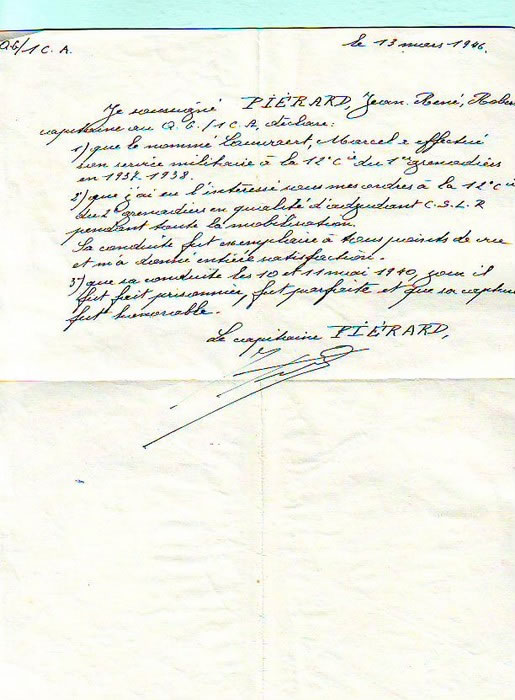 QG/1 C.A.
le 13 mars 1946.
Je soussigné PIÉRARD, Jean René, Robert
capitaine au Q.G./1 C.A, déclare:
1) que le nommé Marcel a effectué
son service militaire à la 12e Cie du 1er grenadiers
en 1937-1938.
2) que j'ai eu l'intéressé sous mes ordres à la 12e Cie
du 2e grenadiers en qualité d'adjudant C.S.L.R
pendant toute la mobilisation.
Sa conduite fut exemplaire à tous points de vue
et m'a donné entière satisfaction.
3) que sa conduite les 10 et 11 mai 1940, jour il
fut fait prisonnier, fut parfaite et que sa capture
fut honorable.
Le capitaine PIÉRARD,